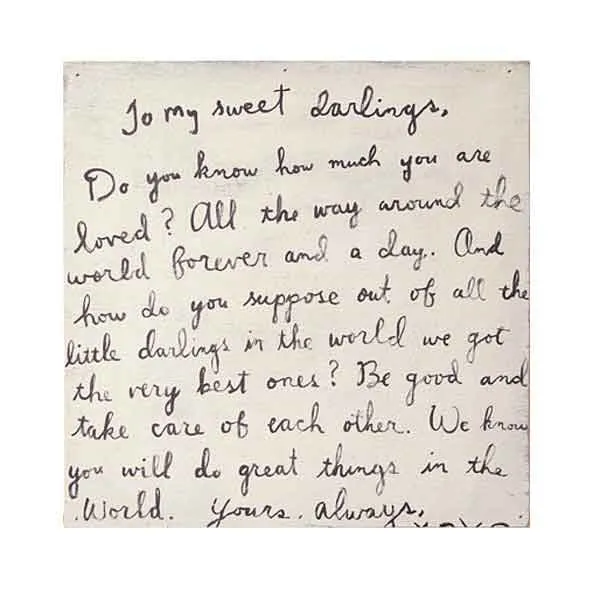 To my sweet darlings,
Do you know how much you are
loved? All the way around the
world forever and a day. And
how do you suppose out of all the
little darlings in the world we got
the very best ones? Be good and
take care of each other. We know
you will do great things in the
World. Yours, always,